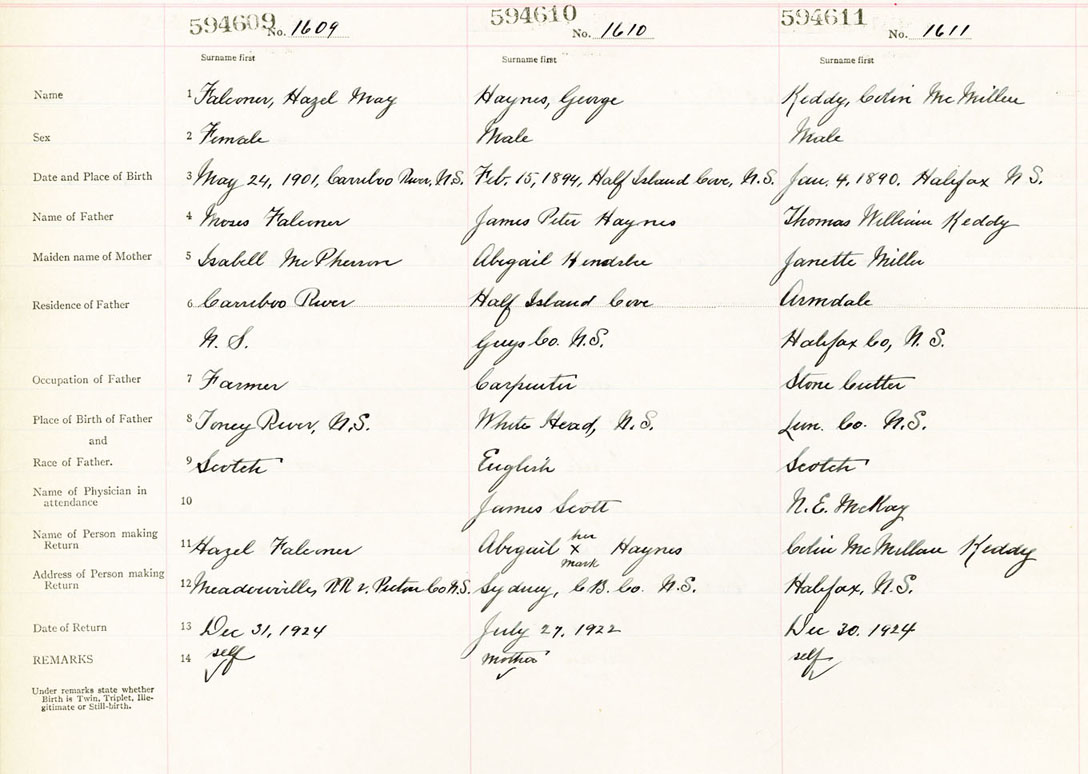 594609 No. 1609 594610 No. 1610 594611 No. 1611
Surname first Surname first Surname first
Name 1 Falconer, Hazel May Haynes, George Keddy, Colin McMillan
Sex 2 Female Male Male
Date and Place of Birth 3 May 24, 1901, Carriboo River, N.S. Feb. 15, 1894, Half Island Cove, N.S. Jan. 4, 1890. Halifax N S.
Name of Father 4 Moses Falconer James Peter Haynes Thomas William Keddy
Maiden name of Mother 5 Isabell McPherson Abigail Janette Miller
Residence of Father 6 Carriboo River Half Island Cove Armdale
N. S. Guys Co. N.S. Halifax Co, N. S.
Occupation of Father 7 Farmer Carpenter Stone Cutter
Place of Birth of Father 8 Toney River, N.S. White Head, N.S. Lun. Co. N.S.
and
Race of Father. 9 Scotch English Scotch
Name of Physician in
attendance 10 James Scott N.E. McKay
Name of Person making her
Return 11 Hazel Falconer Abigail x Haynes Colin McMillan Keddy
mark
Address of Person making
Return 12 Meadowville, RR 2. Pictou Co N.S. Sydney, C.B. Co. N.S. Halifax, N.S.
Date of Return 13 Dec 31, 1924 July 27, 1922 Dec 30, 1924
REMARKS 14 self mother self
Under remarks state whether
Birth is Twin, Triplet, Ille-
gitimate or Still-birth.